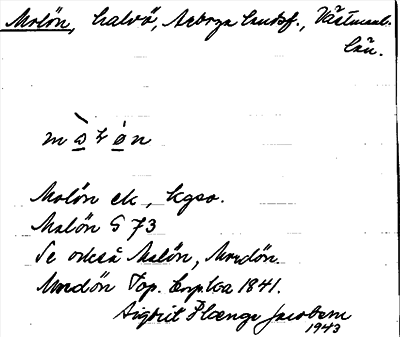 Molön, halvö, Arboga landsf., Västmanl.
län.
Molön ek, kgso.
Malön G 73
Se också Malön, Mordön.
Mordön Top. 1841.
Sigrit Plænge Jacobson
1943